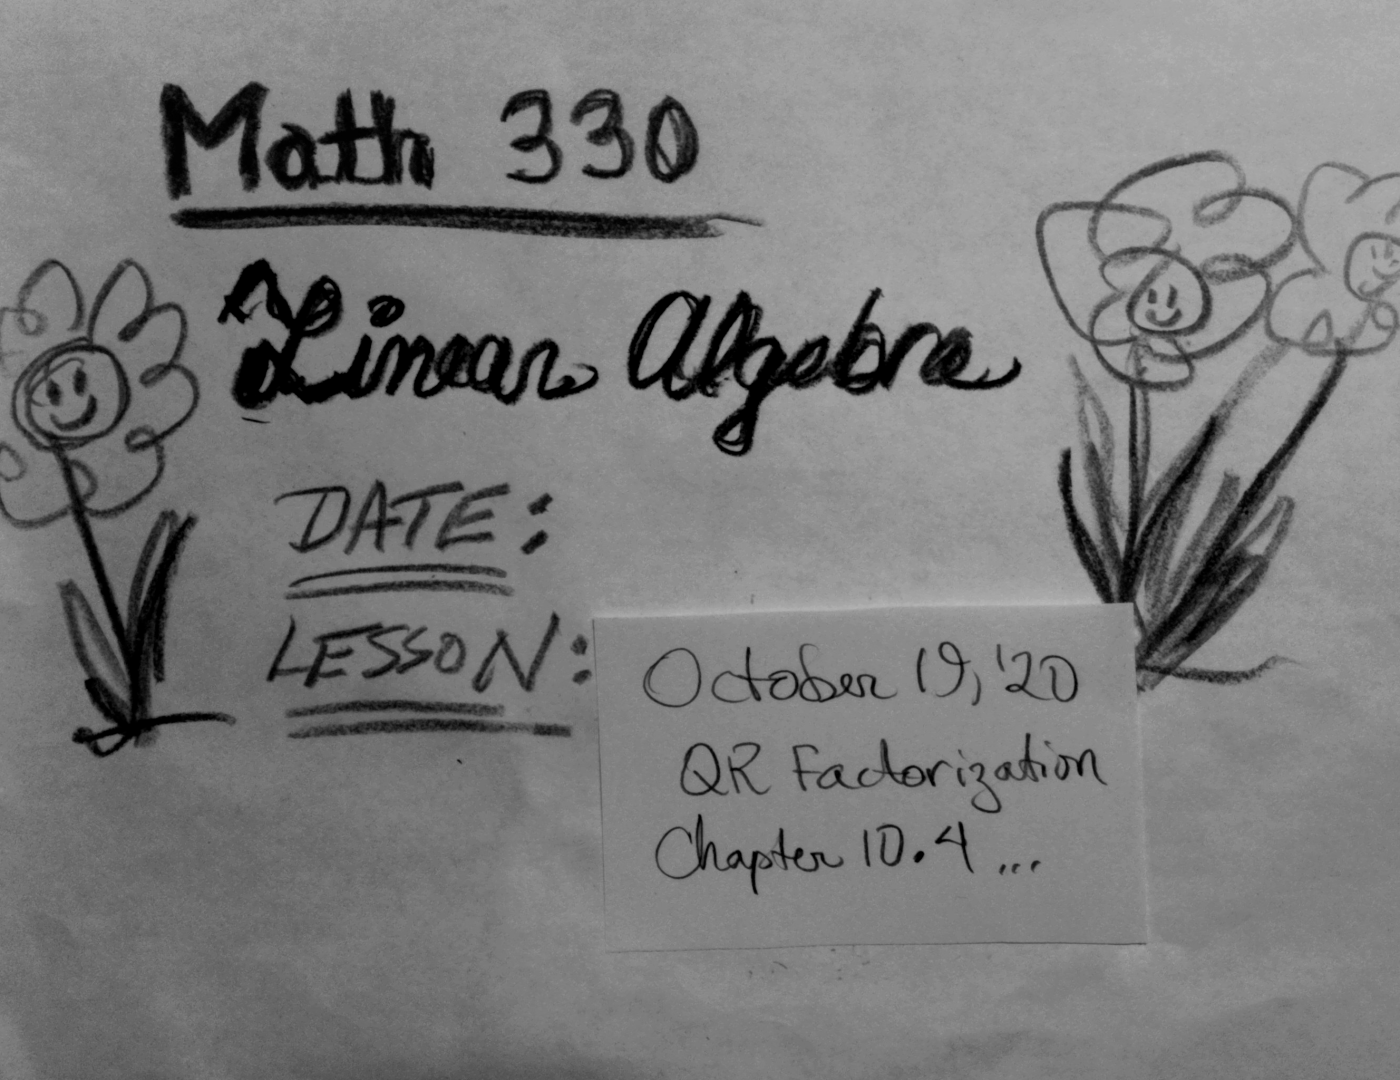 Math 330
Linear Algebra
DATE:
LESSON:
October 19, '20
QR Factorization
Chapter 10.4 ...